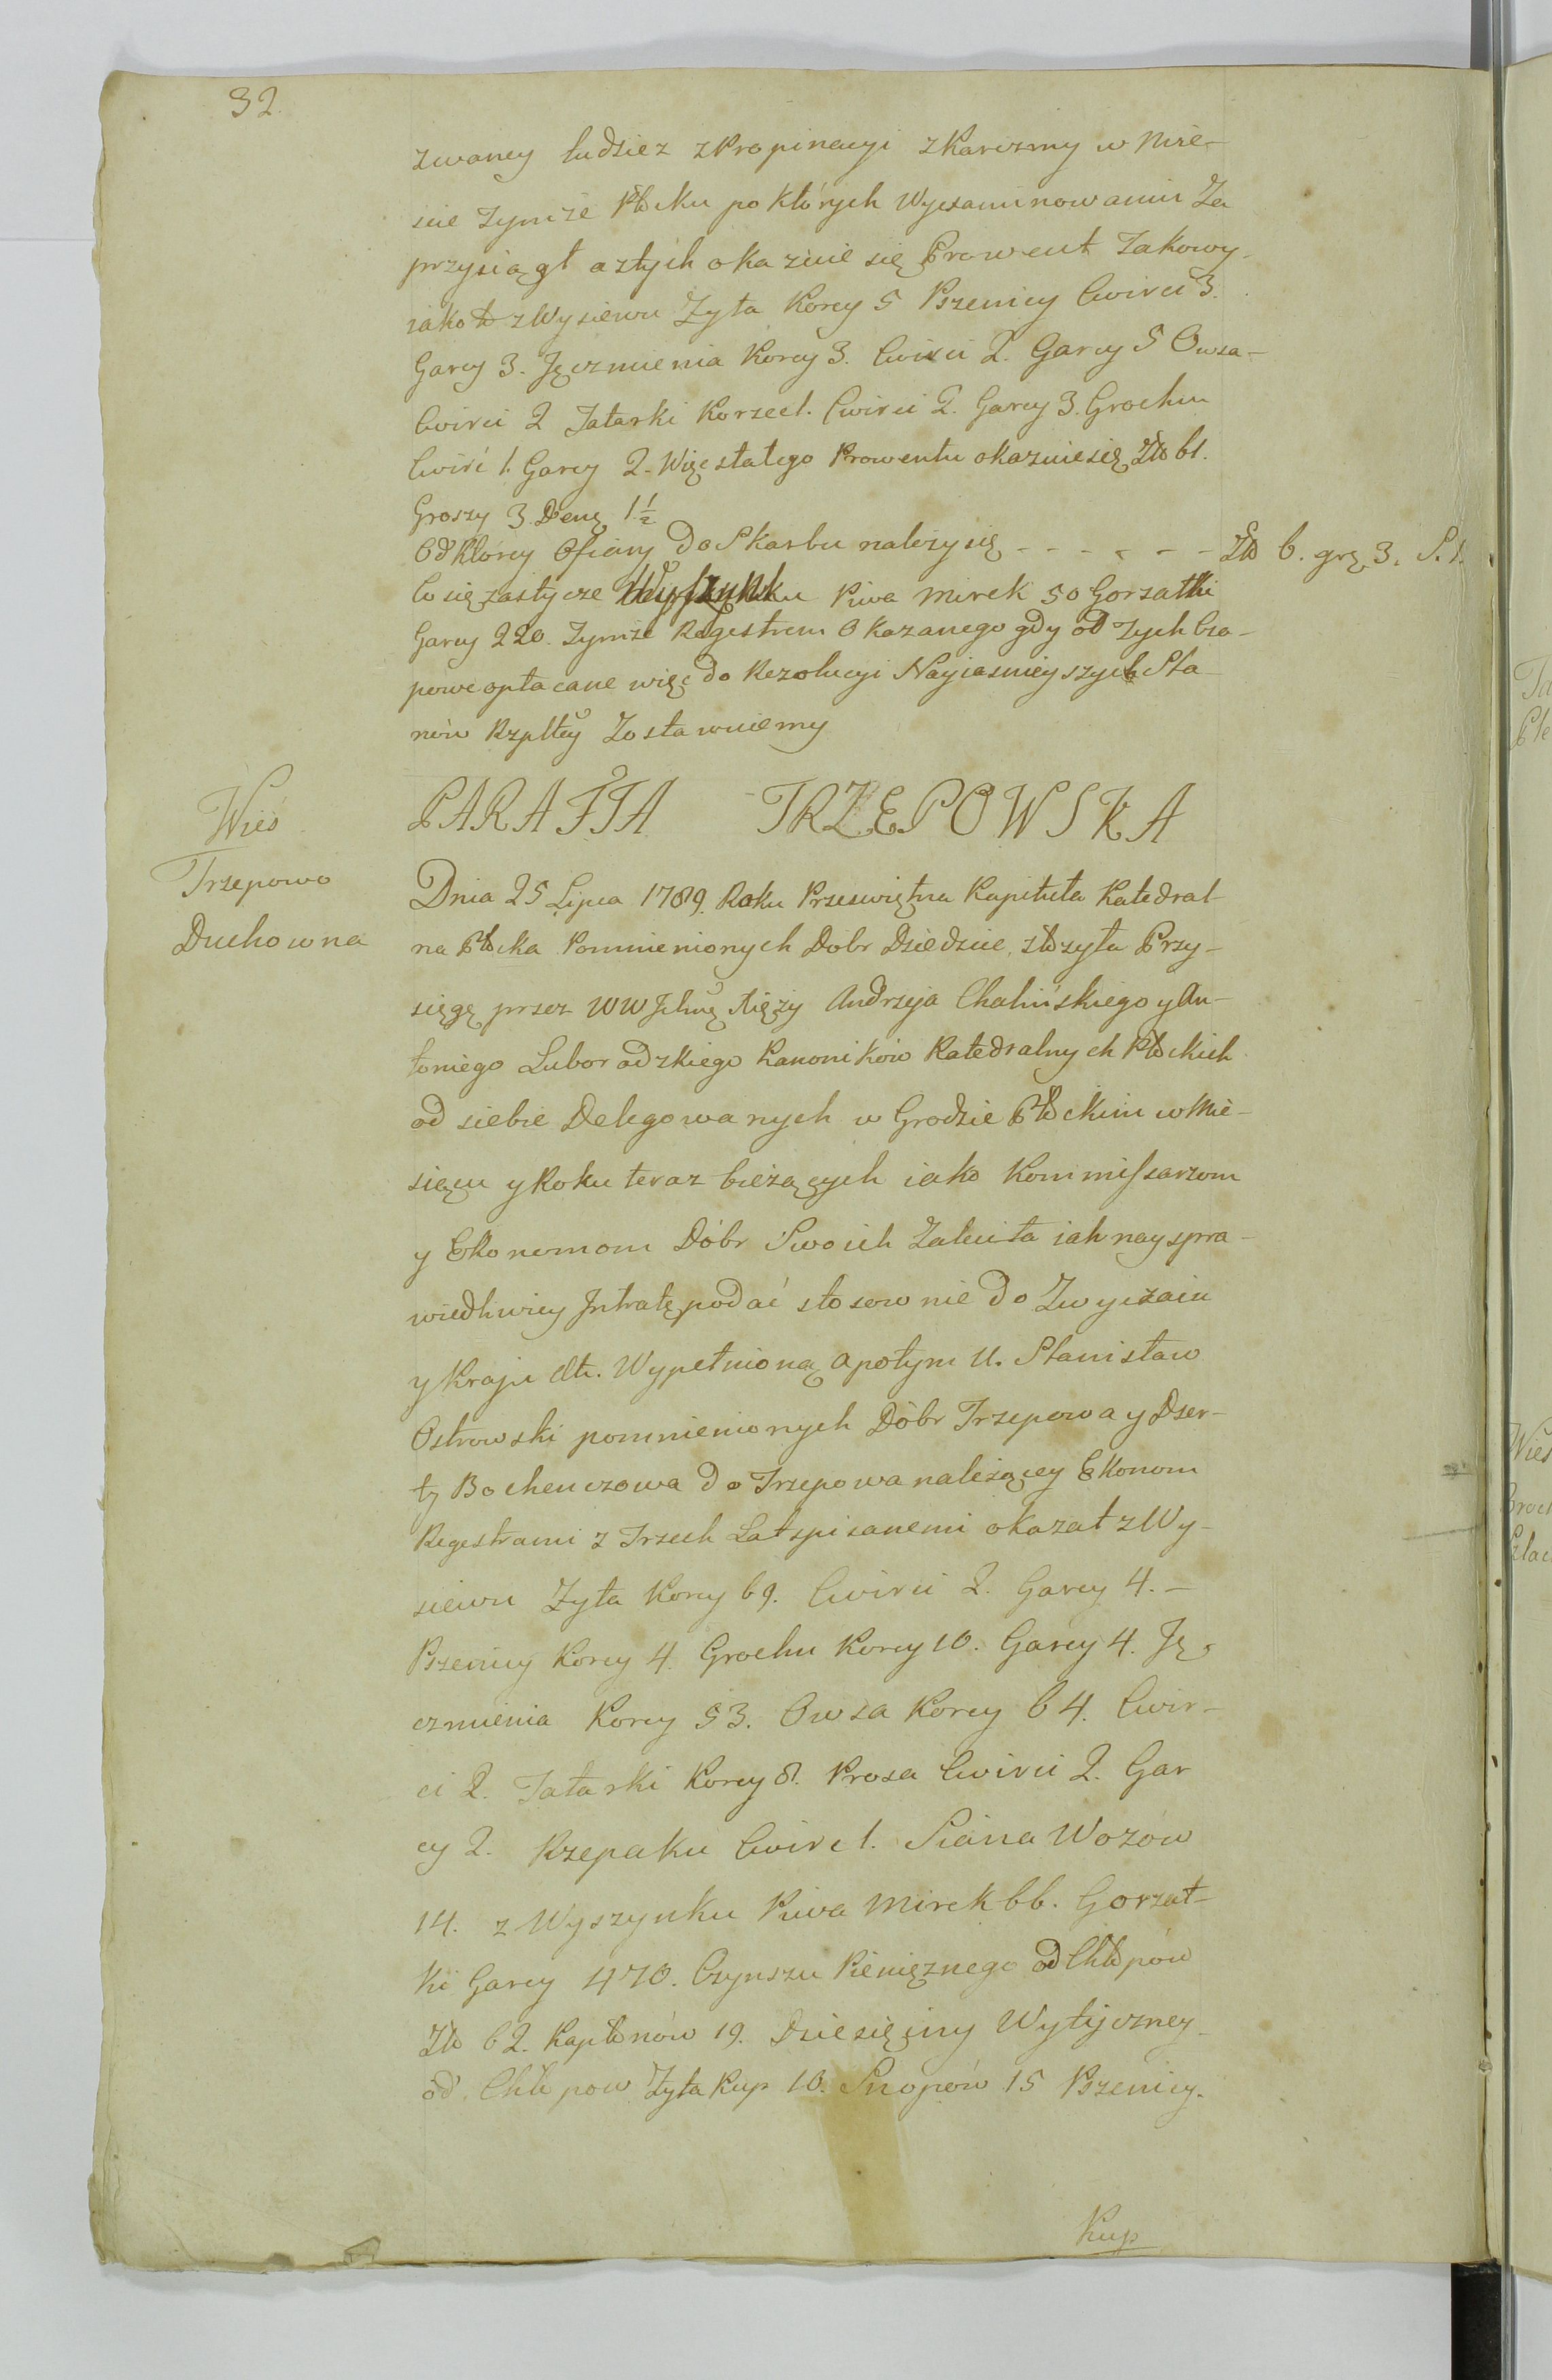 32
zwaney tudzież z Propinacyi z Karczmy w Mie-
scie Tymże Płocku po których Wyexaminowaniu Za
przysiągł a ztych okazuie się Prowent Takowy.
iako to z Wysiewu Zyta Korcy 5 Pszenicy Cwirci 3.
Garcy 3. Jęczmienia Korcy 3. Cwirci 2. Garcy 5 Owsa-
Cwirci 2 Tatarki Korzec 1. Cwirci 2. Garcy 3. Grochu
Cwirć 1. Garcy 2. Więc stałego Prowentu okazuie się Zło 61.
Groszy 3. Denę 1 1/2
Od Którey Ofiary do Skarbu należy się - - - - - - Zło 6. grę 3. S. 1.
Co się zastycze Wyszynku Piwa Mirek 50 Gorzałki
Garcy 220. Tymże Regestrem Okazanego gdy od Tych Czo-
powe opłacane więc do Rezolucyi Nayiasnieyszych Sta-
nów Rzpltey Zostawuiemy
PARAFIA TRZEPOWSKA
Wieś
Trzepowo
Duchowna
Dnia 25 Lipca 1789. Roku Przeswiętna Kapituła Katedral-
na Płocka Pomienionych Dobr Dziedzic, złożyła Przy-
sięgę przez WW Jchmę Xięży Andrzeja Chalińskiego y An-
toniego Luboradzkiego Kanoników Katedralnych Płockich
od siebie Delegowanych w Grodzie Płockim w Mie-
siącu y Roku teraz bieżących iako Kommissarzom
y Ekonomom Dóbr Swoich Zaleciła iak nayspra-
wiedliwiey Jntratę podać stosownie do Zwyczaiu
y Kraju etc. Wypełnioną a potym U. Stanisław
Ostrowski pomienionych Dóbr Trzepowa y Dzer-
ty Bochenczowa do Trzepowa należącey Ekonom
Regestrami z Trzech Lat spisanemi okazał z Wy-
siewu Zyta Korcy 69. Cwirci 2. Garcy 4. -
Pszenicy Korcy 4. Grochu Korcy 10. Garcy 4. Ję-
czmienia Korcy 53. Owsa Korcy 64. Cwir-
ci 2. Tatarki Korcy 8. Prosa Cwirci 2. Gar
cy 2. Rzepaku Cwirc 1. Siana Wozow
14. z Wyszynku Piwa Mirek 66. Gorzał-
ki Garcy 470. Czynszu Pienięznego od Chłopów
Zło 62. Kapłonów 19. Dziesięciny Wytyczney
od Chłopow Zyta Kup 10. Snopów 15 Pszenicy.
Kup